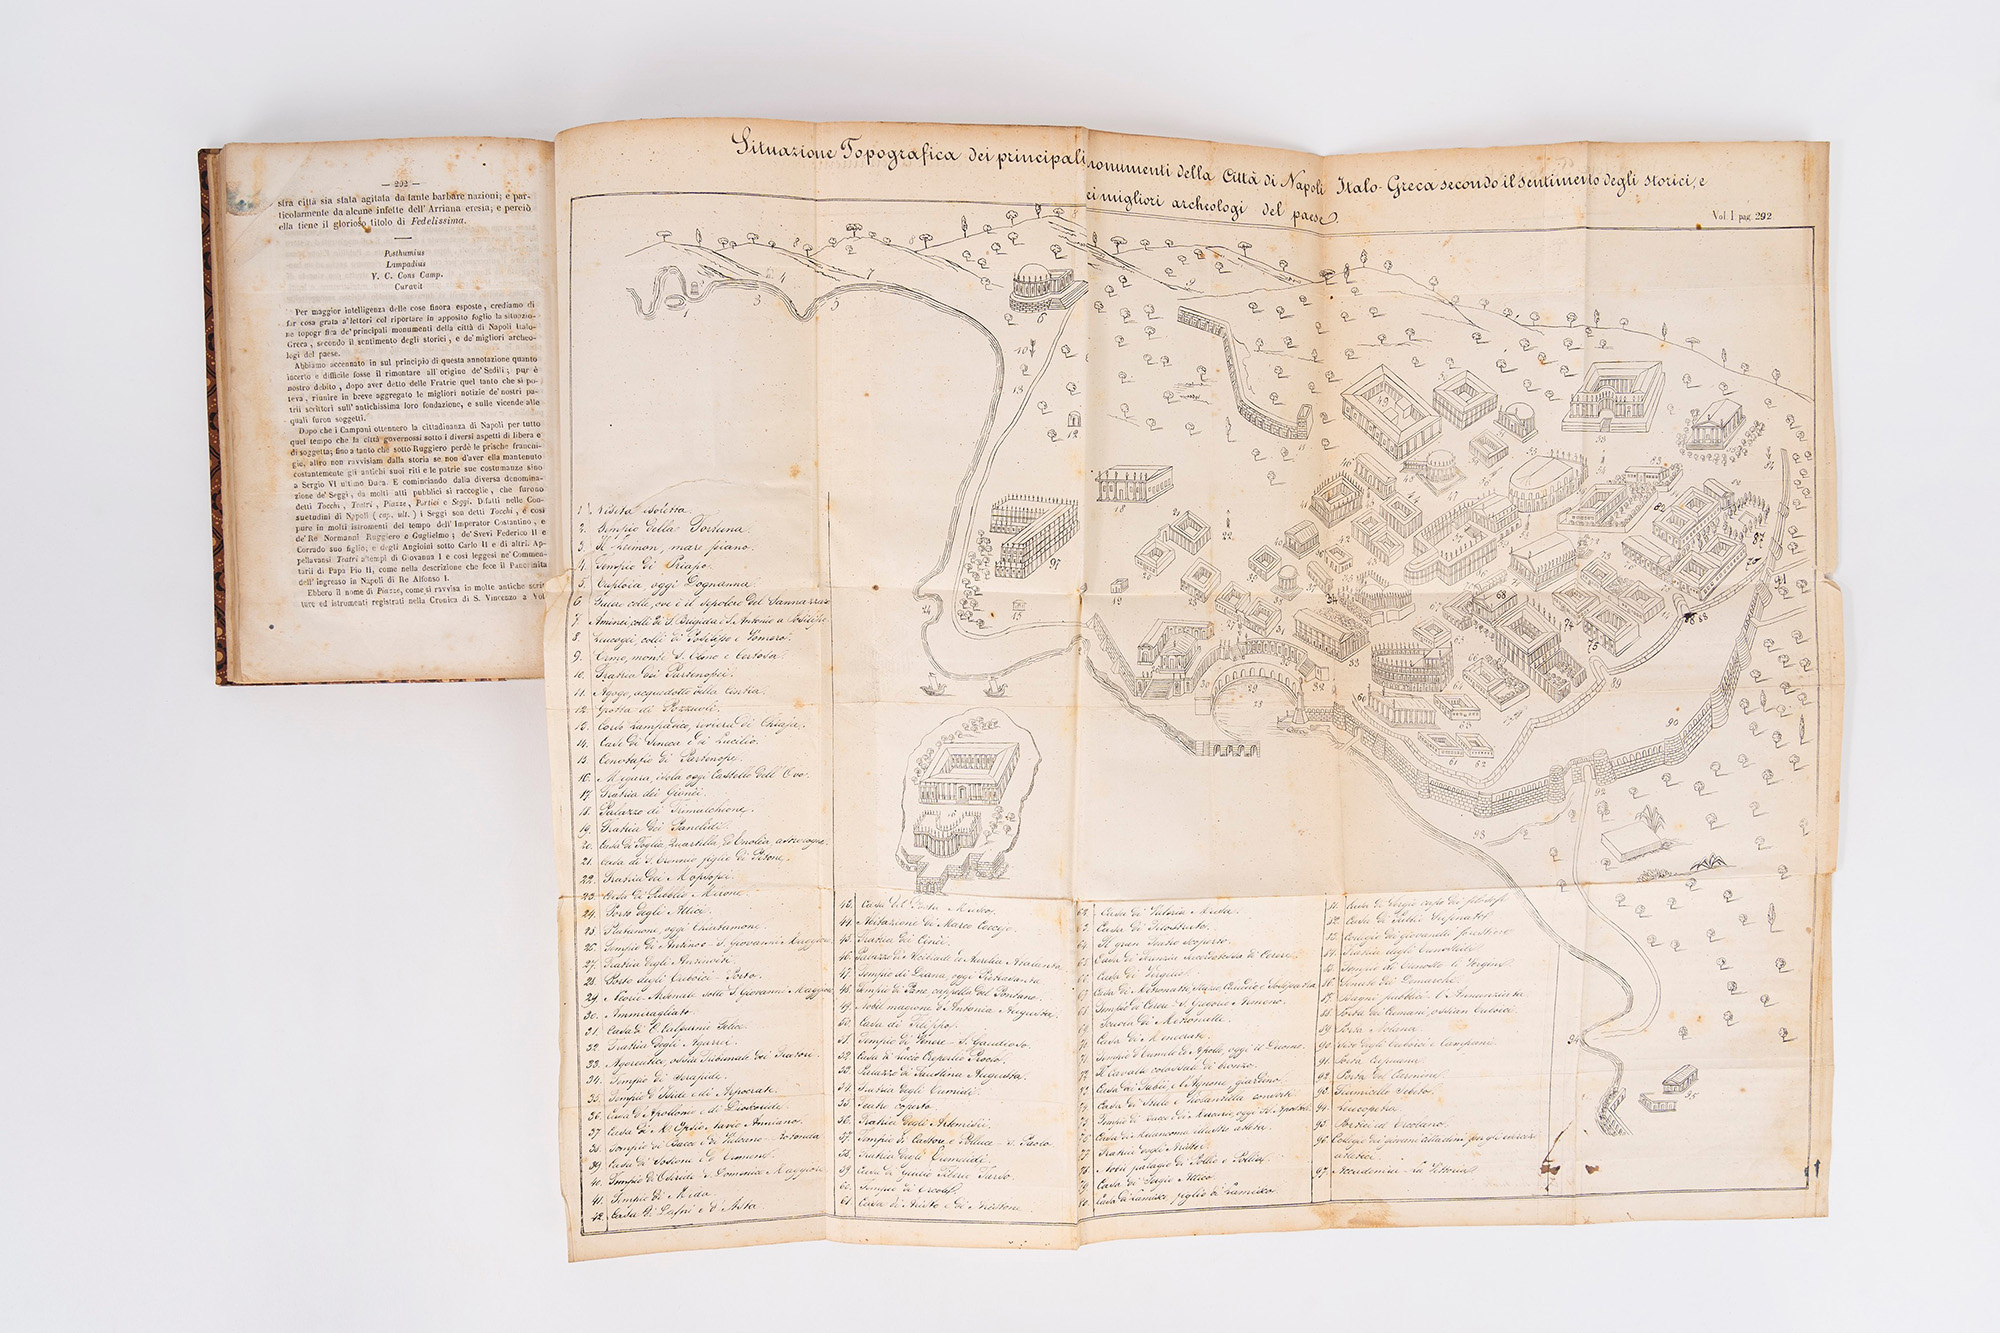 — 292 —
stra città sia stata agitata da tante barbare nazioni; e par-
ticolarmente da alcune infette dell' Arriana eresia; e perciò
ella tiene il glorioso titolo di Fedelissima.
Posthumius
Lampadius
V. C. Cons Camp.
Curavit
Per maggior intelligenza delle cose finora esposte, crediamo di
far cosa grata a' lettori col riportare in apposito foglio la situazio-
ne topogr fica de' principali monumenti della città di Napoli Italo-
Greca, secondo il sentimento degli storici, e de' migliori archeo-
logi del paese.
Abbiamo accennato in sul principio di questa annotazione quanto
incerto e difficile fosse il rimontare all' origine de' Sedili; pur è
nostro debito, dopo aver detto delle Fratrie quel tanto che si po-
teva, riunire in breve aggregato le migliori notizie de' nostri pa-
trii scrittori sull' antichissima loro fondazione, e sulle vicende alle
quali furon soggetti.
Dopo che i Campani ottennero la cittadinanza di Napoli per tutto
quel tempo che la città governossi sotto i diversi aspetti di libera e
di soggetta; fino a tanto che sotto Ruggiero perdè le prische franchi-
gie, altro non ravvisiam dalla storia se non d'aver ella mantenuto
costantemente gli antichi suoi riti e le patrie sue costumanze sino
a Sergio VI ultimo Duca. E cominciando dalla diversa denomina-
zione de' Seggi, da molti atti pubblici si raccoglie, che furono
detti Tocchi, Teatri, Piazze, Portici e Seggi. Difatti nelle Con-
suetudini di Napoli (cap. ult.) i Seggi son detti Tocchi, e così
pure in molti istromenti del tempo dell' Imperator Costantino, e
de' Re Normanni Ruggiero e Guglielmo; de' Svevi Federico II e
Corrado suo figlio; e degli Angioini sotto Carlo II e di altri. Ap-
pellavansi Teatri a' tempi di Giovanna I e così leggesi ne' Commen-
tarii di Papa Pio II, come nella descrizione che fece il Panormita
dell' ingresso in Napoli di Re Alfonso I.
Ebbero il nome di Piazze, come si ravvisa in molte antiche scrit-
ture ed istromenti registrati nella Cronica di S. Vincenzo a Vol
Situazione Topografica dei principali monumenti della Città di Napoli Italo-Greca secondo il sentimento degli storici, e
dei migliori archeologi del paese.
Vol I pag. 292
1. Nisita isoletta.
2. Tempio della Fortuna
3. Il Leimon, mare piano.
4. Tempio di Priapo.
5. Euploia, oggi Gognanna
6. colle, ove è il sepolcro del Sannazzaro
7. Aminei, colli di S. Brigida e S. Antonio a Posilipo
8. Leucogei, colli di Posilipo e Vomero.
9. Ermo, monte S. Elmo e Certosa.
10. Fratria dei Partenopei.
11. Agogo, acquedotto della Centia.
12. Grotta di Pozzuoli.
13. Corso Lampadico, riviera di Chiaja.
14. Case di Seneca e di Lucilio.
15. Cenotafio di Partenope.
16. Megara, isola oggi Castello dell' Ovo.
17. Fratria dei Gionei.
18. Palazzo di Trimalchione.
19. Fratria dei Panclidi.
20. Casa di Foglia, Quartilla, ed Enolea, astrologhe.
21. Casa di S. Ermnio figlio di Pisone.
22. Fratria dei Mopsopii.
23. Casa di Publio Mirone.
24. Porto degli Attici.
25. Platanone, oggi Chiatamone.
26. Tempio di Antinoo - S. Giovanni Maggiore
27. Fratria degli Antinoiti
28. Porto degli Euboici - Porto.
29. Arsenale sotto S. Giovanni Maggiore
30. Ammiragliato
31. Casa di Calpurnio Felice.
32. Fratria degli Agarrei.
33. ossia Tribunale dei Fratori.
34. Tempio di Serapide.
35. Tempio d'Iside e di Arpocrate.
36. Casa d'Apollonio e di Dioscoride.
37. Casa di M. Opsio Navio Anniano.
38. Tempio di Bacco e di Vulcano - Rotonda
39. Casa di Sosione ed Eumene.
40. Tempio di Osiride - S. Domenico Maggiore
41. Tempio di Mida.
42. Casa di e d' Asta.
43. Casa del Musco.
44. Abitazione di Marco Cocceio.
45. Fratria dei Cinei.
46. Palazzo di Alcibiade e Aurelia
47. Tempio di Diana, oggi Pietrasanta
48. Tempio di Pane, cappella del Pontano.
49. Nobil magione d'Antonia Augusta.
50. Casa di Filippo.
51. Tempio di Venere - S. Gaudioso.
52. Casa di Lucio Proclo.
53. Palazzo di Faustina Augusta.
54. Fratria degli Eumidi.
55. Teatro coperto.
56. Fratria degli Artemisii.
57. Tempio di Castore, e Polluce - S. Paolo
58. Fratria degli Eumelidi.
59. Casa di Giulio Tarso.
60. Tempio di Ercole.
61. Casa di Aristo e di Aristone.
62. Casa di Valeria Musa.
63. Casa di Filostrato.
64. Il gran Teatro scoperto.
65. Casa di Terenzia Sacerdotessa di Cerere.
66. Casa di Virgilio.
67. Casa di Metronatte, Stazio, Claudio, e
68. Tempio di Cerere - S. Gregorio Armeno.
69. Scuola di Metronatte.
70. Casa di Menecrate.
71. Tempio d'Apollo, oggi il Duomo.
72. Il Cavallo colossale di bronzo.
73. Casa di Fabii, e l'Agnone, giardino.
74. Casa di Stile e
75. Tempio di Bacco e di Mercurio, oggi SS. Apostoli
76. Casa di illustre atleta.
77. Fratria degli Aristei
78. Nobil palagio di Pollio e Polla.
79. Casa di Sergio Attico
80. Casa di Lamisco figlio di Lamisco.
81. Casa di Sergio capo dei filosofi
82. Casa di
83. Collegio dei giovanetti
84. Fratria degli Eunostidi
85. Tempio di Eunosto le Vergini
86. Tenuta dei Demarchi.
87. Bagni pubblici - l'Annunziata.
88. Porta dei Cumani, ossian Euboici.
89. Porta Nolana
90. degli Euboici e Campani.
91. Porta Capuana.
92. Porta del Carmine.
93. Fiumicello Sebeto.
94. Leucopetra.
95. Portici ed Ercolano.
96. Collegio dei giovani cittadini, per gli esercizi
atletici.
97. Accademia - la Vittoria